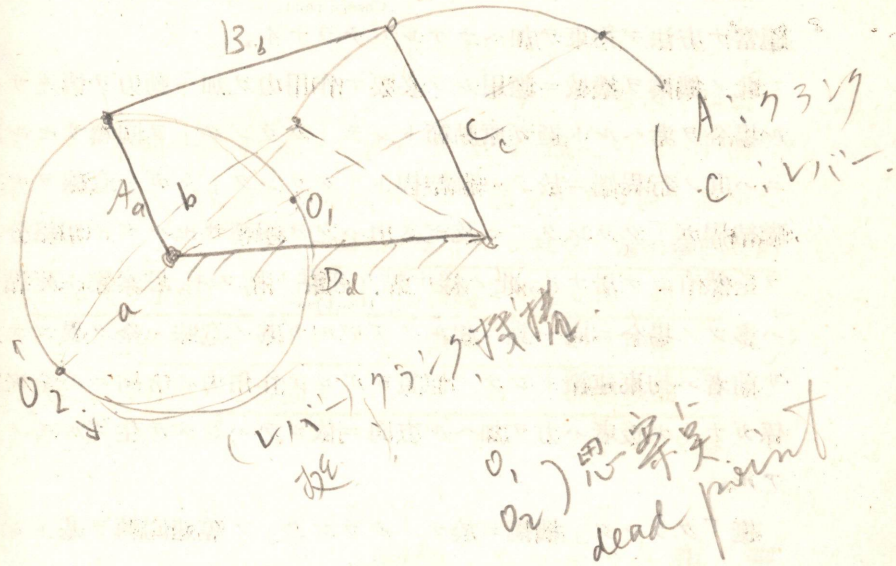 B b
A a
b
a
O₁
C c
D d
O₂
A：クランク
C：レバー
(レバー)クランク機構
O₁
O₂) 思案点
dead point